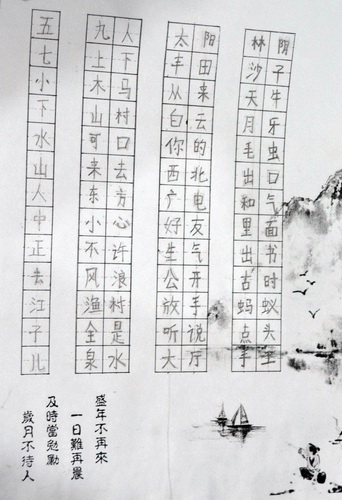 五
七
小
下
水
山
人
中
正
去
江
子
儿
九人
土下
木马
山村
可口
来去
东芳
小心
不许
风浪
渔村
全是
泉水
太阳
丰田
从来
白云
你的
西北
广电
好友
生气
公开
放手
听说
大厅
林阴
沙子
天牛
月牙
毛虫
出口
和气
里面
出书
古时
蚂蚁
点头
手
盛年不再來
一日難再晨
及時當勉勵
歲月不待人